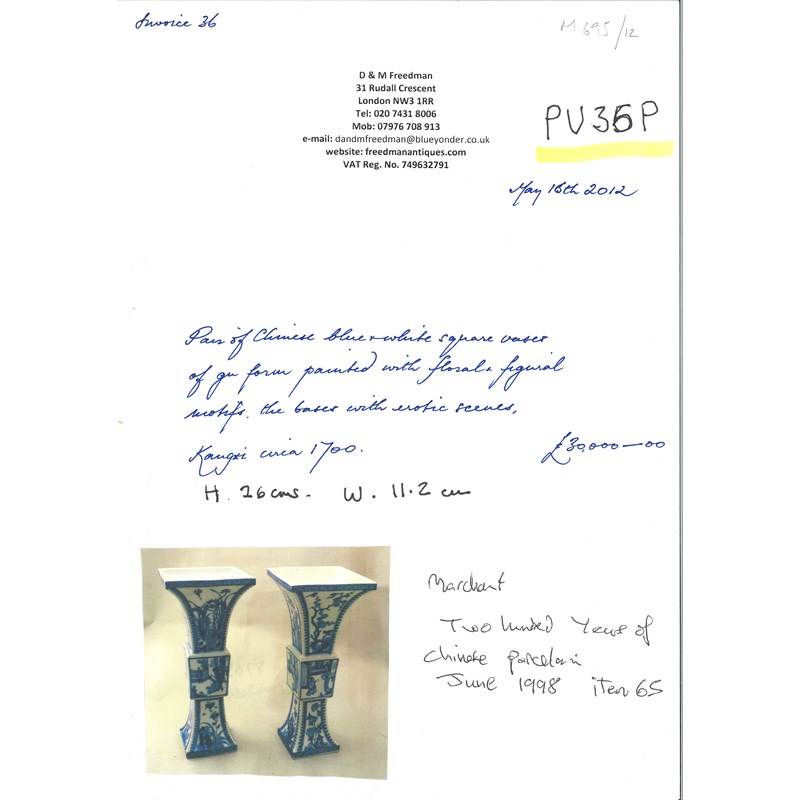 Invoice 36
M695/12
D & M Freedman
31 Rudall Crescent
London NW3 1RR
Tel: 020 7431 8006
Mob: 07976 708 913
e-mail: dandmfreedman@blueyonder.co.uk
website: freedmanantiques.com
VAT Reg. No. 749632791
PV35P
May 16th 2012
Pair of Chinese blue + white square vases
of gu form painted with floral + figurial
motifs, the bases with erotic scenes,
Kangxi circa 1700. £30,000—00
H. 26 cms. W. 11.2 cm
Marchant
Two hundred Years of
Chinese porcelain
June 1998 item 65